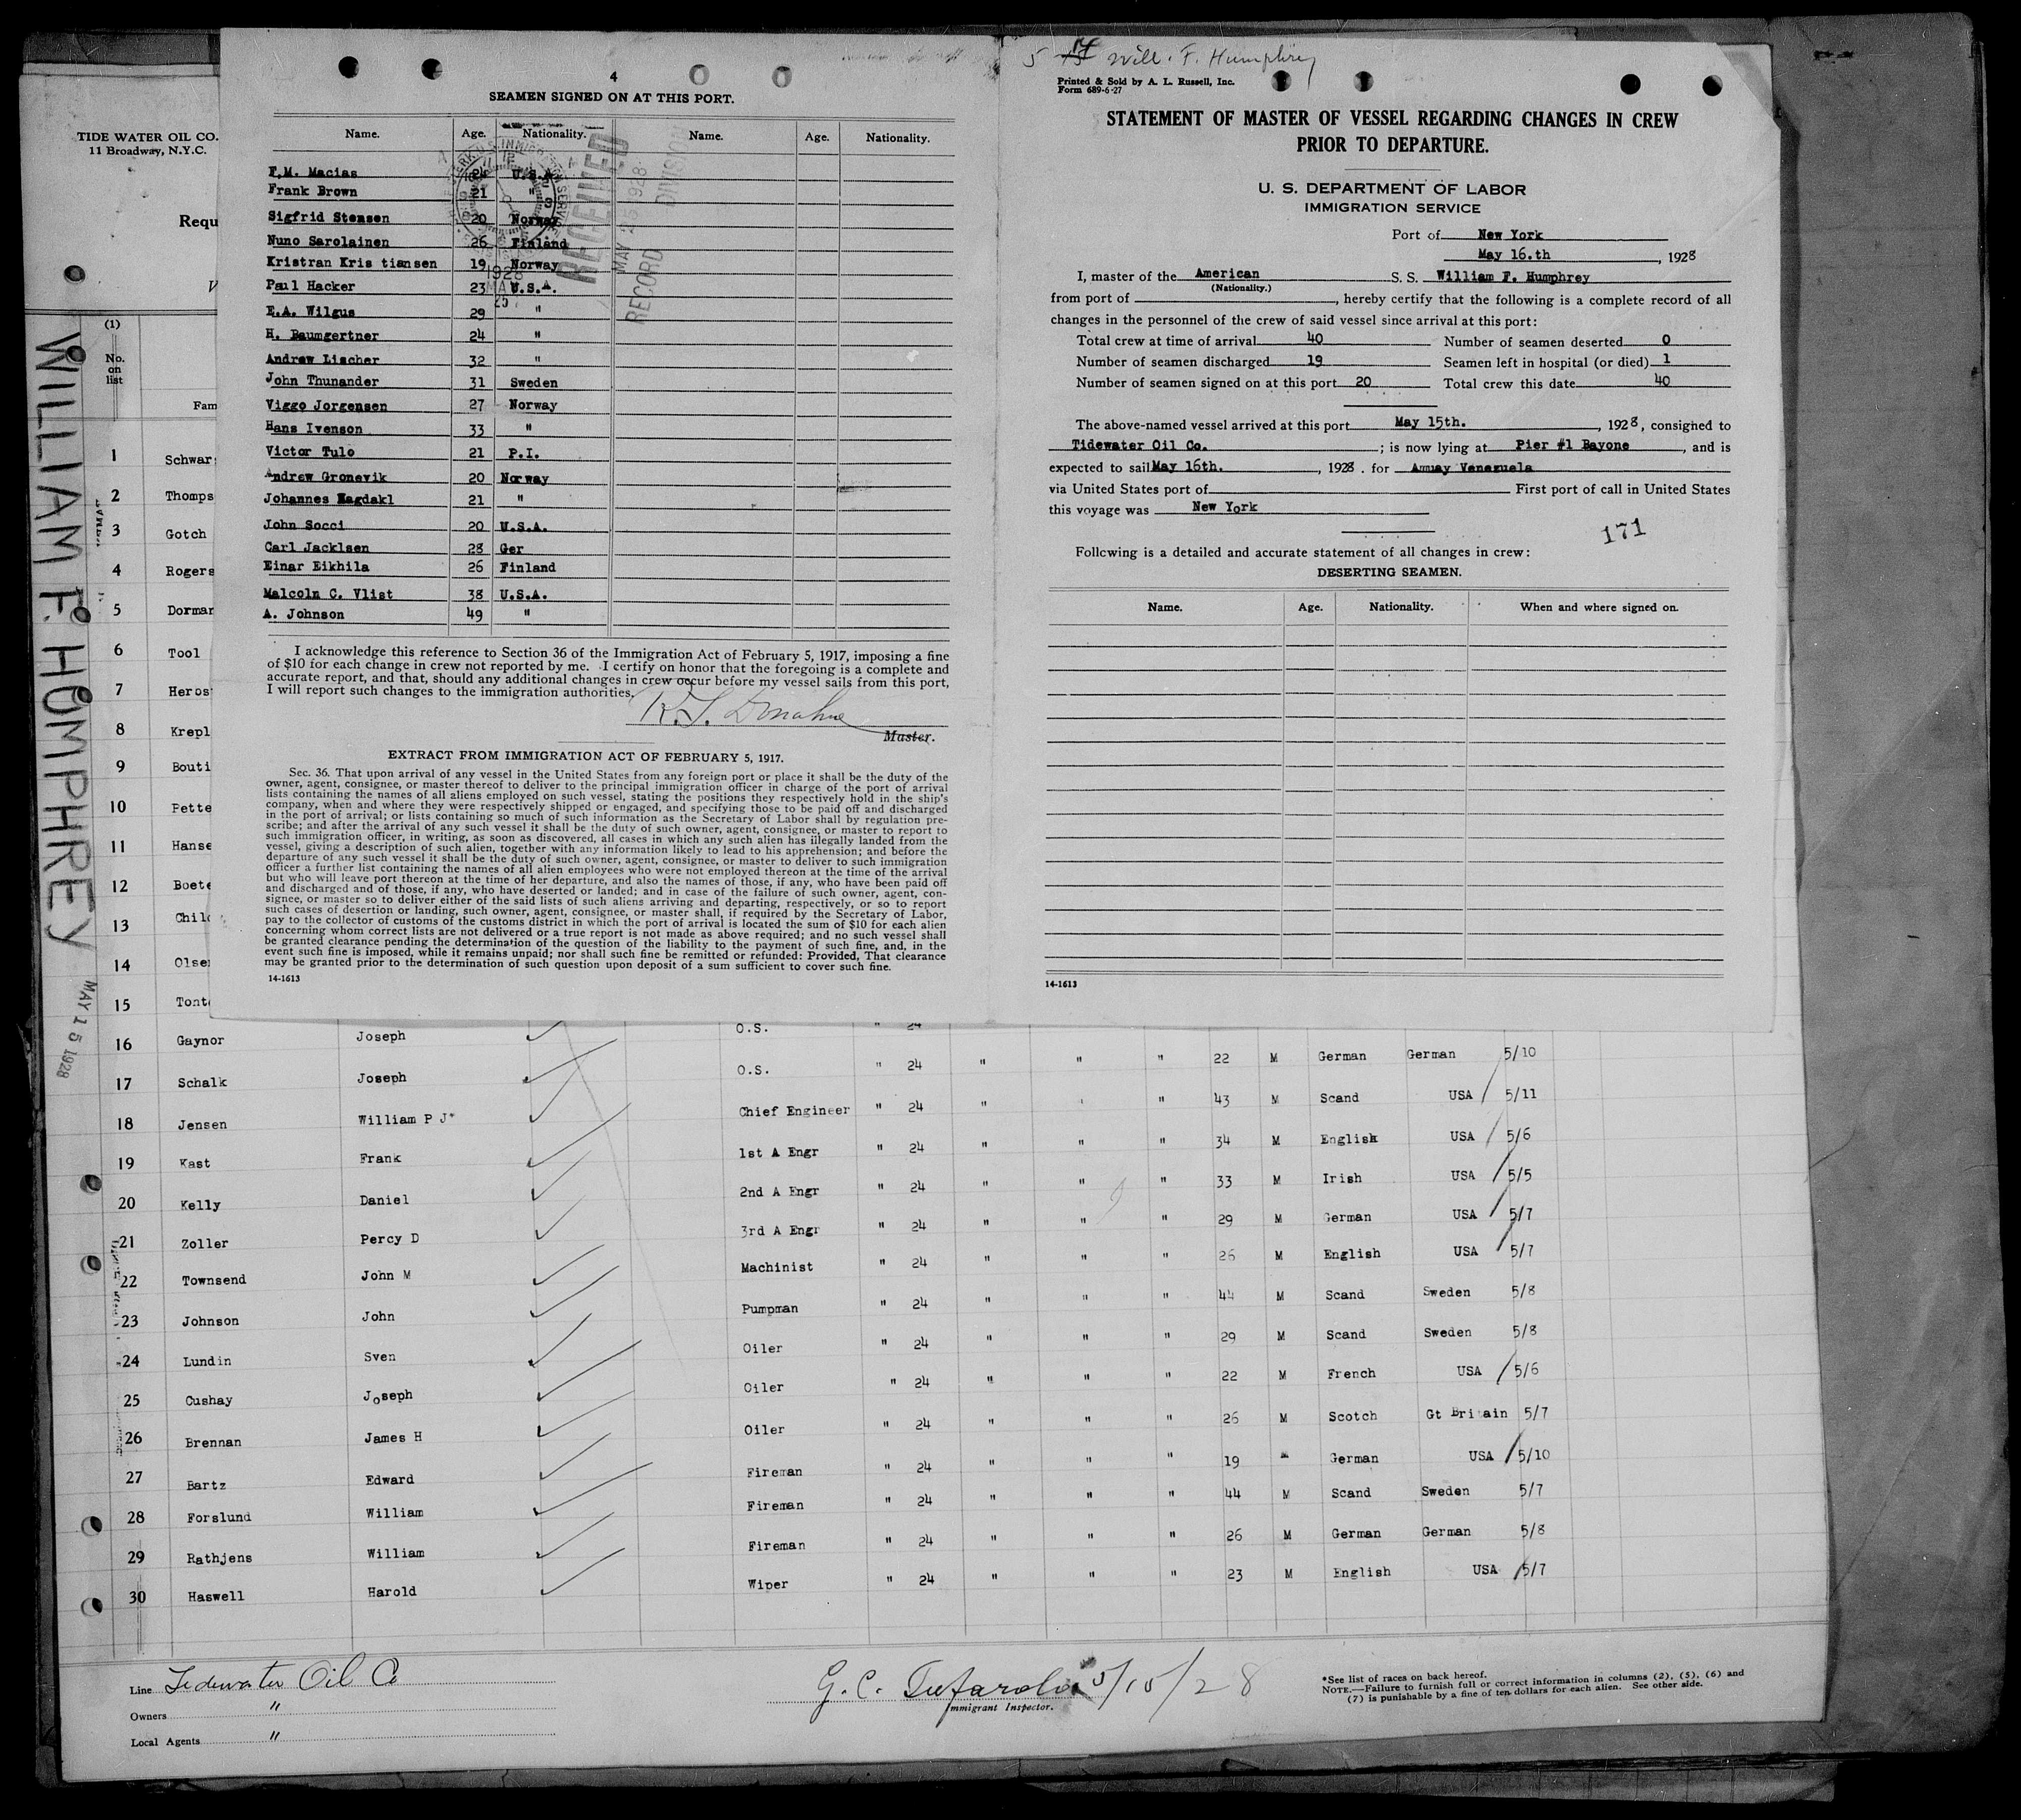 4
SEAMEN SIGNED ON AT THIS PORT.
Name. Age. Nationality. Name. Age. Nationality.
F.M. Macias 24 U.S.A.
Frank Brown 21 "
Sigfrid Stensen 20 Norway
Nuno Sarolainen 26 Finland
Kristran Kris tiansen 19 Norway
Paul Hacker 23 U.S.A.
E.A. Wilgus 29 "
H. Baumgertner 24 "
Andrew Lischer 32 "
John Thunander 31 Sweden
Viggo Jorgensen 27 Norway
Hans Ivenson 33 "
Victor Tulo 21 P.I.
Andrew Gronevik 20 Norway
Johannes Hagdakl 21 "
John Socci 20 U.S.A.
Carl Jacklsen 28 Ger
Einar Eikhila 26 Finland
Malcoln C. Vlist 38 U.S.A.
A. Johnson 49 "
RECEIVED
MAY 26 1928
RECORD DIVISION
I acknowledge this reference to Section 36 of the Immigration Act of February 5, 1917, imposing a fine
of $10 for each change in crew not reported by me. I certify on honor that the foregoing is a complete and
accurate report, and that, should any additional changes in crew occur before my vessel sails from this port,
I will report such changes to the immigration authorities.
R.S. Donahue
Master.
EXTRACT FROM IMMIGRATION ACT OF FEBRUARY 5, 1917.
Sec. 36. That upon arrival of any vessel in the United States from any foreign port or place it shall be the duty of the
owner, agent, consignee, or master thereof to deliver to the principal immigration officer in charge of the port of arrival
lists containing the names of all aliens employed on such vessel, stating the positions they respectively hold in the ship's
company, when and where they were respectively shipped or engaged, and specifying those to be paid off and discharged
in the port of arrival; or lists containing so much of such information as the Secretary of Labor shall by regulation pre-
scribe; and after the arrival of any such vessel it shall be the duty of such owner, agent, consignee, or master to report to
such immigration officer, in writing, as soon as discovered, all cases in which any such alien has illegally landed from the
vessel, giving a description of such alien, together with any information likely to lead to his apprehension; and before the
departure of any such vessel it shall be the duty of such owner, agent, consignee, or master to deliver to such immigration
officer a further list containing the names of all alien employees who were not employed thereon at the time of the arrival
but who will leave port thereon at the time of her departure, and also the names of those, if any, who have been paid off
and discharged and of those, if any, who have deserted or landed; and in case of the failure of such owner, agent, con-
signee, or master so to deliver either of the said lists of such aliens arriving and departing, respectively, or so to report
such cases of desertion or landing, such owner, agent, consignee, or master shall, if required by the Secretary of Labor,
pay to the collector of customs of the customs district in which the port of arrival is located the sum of $10 for each alien
concerning whom correct lists are not delivered or a true report is not made as above required; and no such vessel shall
be granted clearance pending the determination of the question of the liability to the payment of such fine, and, in the
event such fine is imposed, while it remains unpaid; nor shall such fine be remitted or refunded: Provided, That clearance
may be granted prior to the determination of such question upon deposit of a sum sufficient to cover such fine.
14-1613
5 Will. F. Humphrey
Printed & Sold by A. L. Russell, Inc.
Form 689-6-27
STATEMENT OF MASTER OF VESSEL REGARDING CHANGES IN CREW
PRIOR TO DEPARTURE.
U. S. DEPARTMENT OF LABOR
IMMIGRATION SERVICE
Port of New York
May 16.th, 1928
I, master of the American S. S. William F. Humphrey
(Nationality.)
from port of , hereby certify that the following is a complete record of all
changes in the personnel of the crew of said vessel since arrival at this port:
Total crew at time of arrival 40 Number of seamen deserted 0
Number of seamen discharged 19 Seamen left in hospital (or died) 1
Number of seamen signed on at this port 20 Total crew this date 40
The above-named vessel arrived at this port May 15th. , 1928, consigned to
Tidewater Oil Co. ; is now lying at Pier #1 Bayone , and is
expected to sail May 16th. , 1928. for Amuay Venezuela
via United States port of First port of call in United States
this voyage was New York
171
Following is a detailed and accurate statement of all changes in crew:
DESERTING SEAMEN.
Name. Age. Nationality. When and where signed on.
14-1613
TIDE WATER OIL CO.
11 Broadway, N.Y.C.
Requ
V
(1)
No.
on
list
Fam
WILLIAM F. HUMPHREY
MAY 15 1928
1 Schwar
2 Thomps
3 Gotch
4 Rogers
5 Dorman
6 Tool
7 Heros
8 Krepl
9 Bouti
10 Pette
11 Hanse
12 Boete
13 Chil
14 Olse
15 Tont
16 Gaynor Joseph O.S. " 24
17 Schalk Joseph O.S. " 24 " " " 22 M German German 5/10
18 Jensen William P J* Chief Engineer " 24 " " " 43 M Scand USA 5/11
19 Kast Frank 1st A Engr " 24 " " " 34 M English USA 5/6
20 Kelly Daniel 2nd A Engr " 24 " " " 33 M Irish USA 5/5
21 Zoller Percy D 3rd A Engr " 24 " " " 29 M German USA 5/7
22 Townsend John M Machinist " 24 " " " 26 M English USA 5/7
23 Johnson John Pumpman " 24 " " " 44 M Scand Sweden 5/8
24 Lundin Sven Oiler " 24 " " " 29 M Scand Sweden 5/8
25 Cushay Joseph Oiler " 24 " " " 22 M French USA 5/6
26 Brennan James H Oiler 24 " " " 26 M Scotch Gt Britain 5/7
27 Bartz Edward Fireman " 24 " " " 19 German USA 5/10
28 Forslund William Fireman " 24 " " " 44 M Scand Sweden 5/7
29 Rathjens William Fireman " 24 " " " 26 M German German 5/8
30 Haswell Harold Wiper " 24 " " " 23 M English USA 5/7
Line Tidewater Oil Co
Owners "
Local Agents "
G. C. 5/15/28
Immigrant Inspector.
*See list of races on back hereof.
NOTE.—Failure to furnish full or correct information in columns (2), (5), (6) and
(7) is punishable by a fine of ten dollars for each alien. See other side.